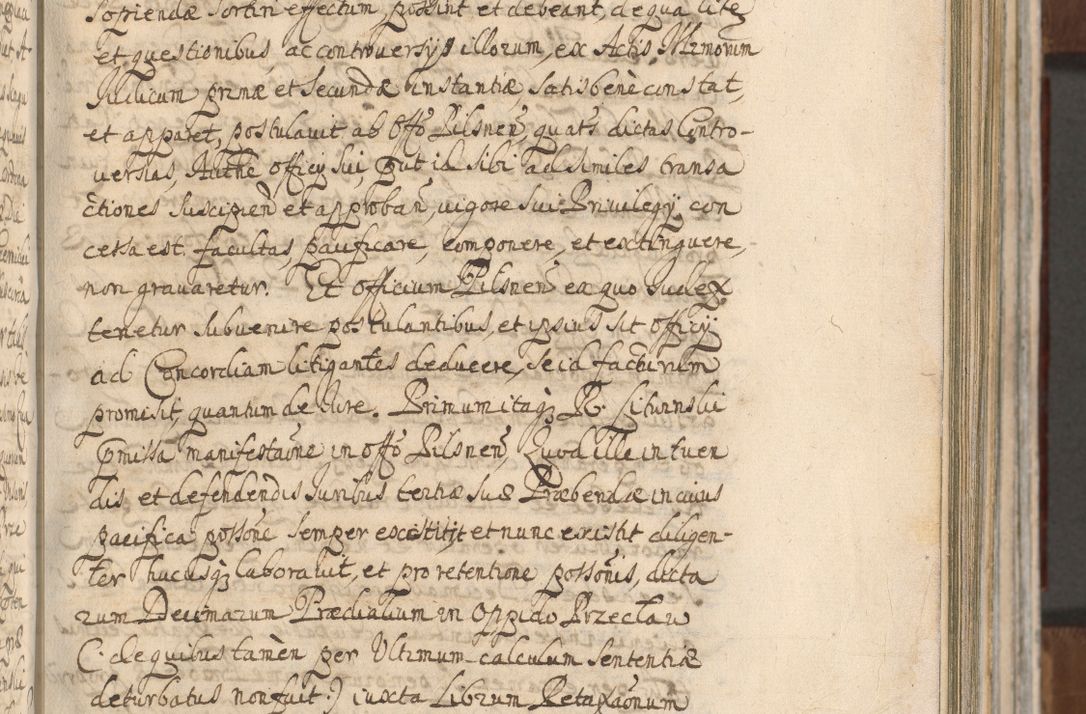 sopiendæ sortiri effectum possint et debeant, de qua lite
et questionibus, ac controversijs illorum, ex Actis Memorum
Judicum primæ et secundæ instantiæ, satis bene constat,
et apparet, postulavit ab Offo Pilsnen, quats dictas Contro-
versias, Authe officij sui, put id sibi ad similes transa
ctiones suscipien et approban, vigore sui Privilegij con
cessa est facultas, pacificare, componere, et extinguere,
non gravaretur. Et Officium Pilsnen ex quo Judex
tenetur subvenire postulantibus, et ipsius sit officij
ad Concordiam litigantes deducere, se id facturum
promisit, quantum de Jure. Primum itaq R.
pmissa manifestatione in offo Pilsnen, Quod ille in tuen
dis, et defendendis Juribus tertiæ suæ Præbendæ in cuius
pacifica possone semper exstitit et nunc existit diligen-
ter hucusq laboravit, et pro retentione possonis, dicta
rum Decimarum Prædialium in Oppido Przeclaw
C. de quibus tamen per Ultimum calculum Sententiæ
deturbatus non fuit :) iuxta Librum Retaxaonum